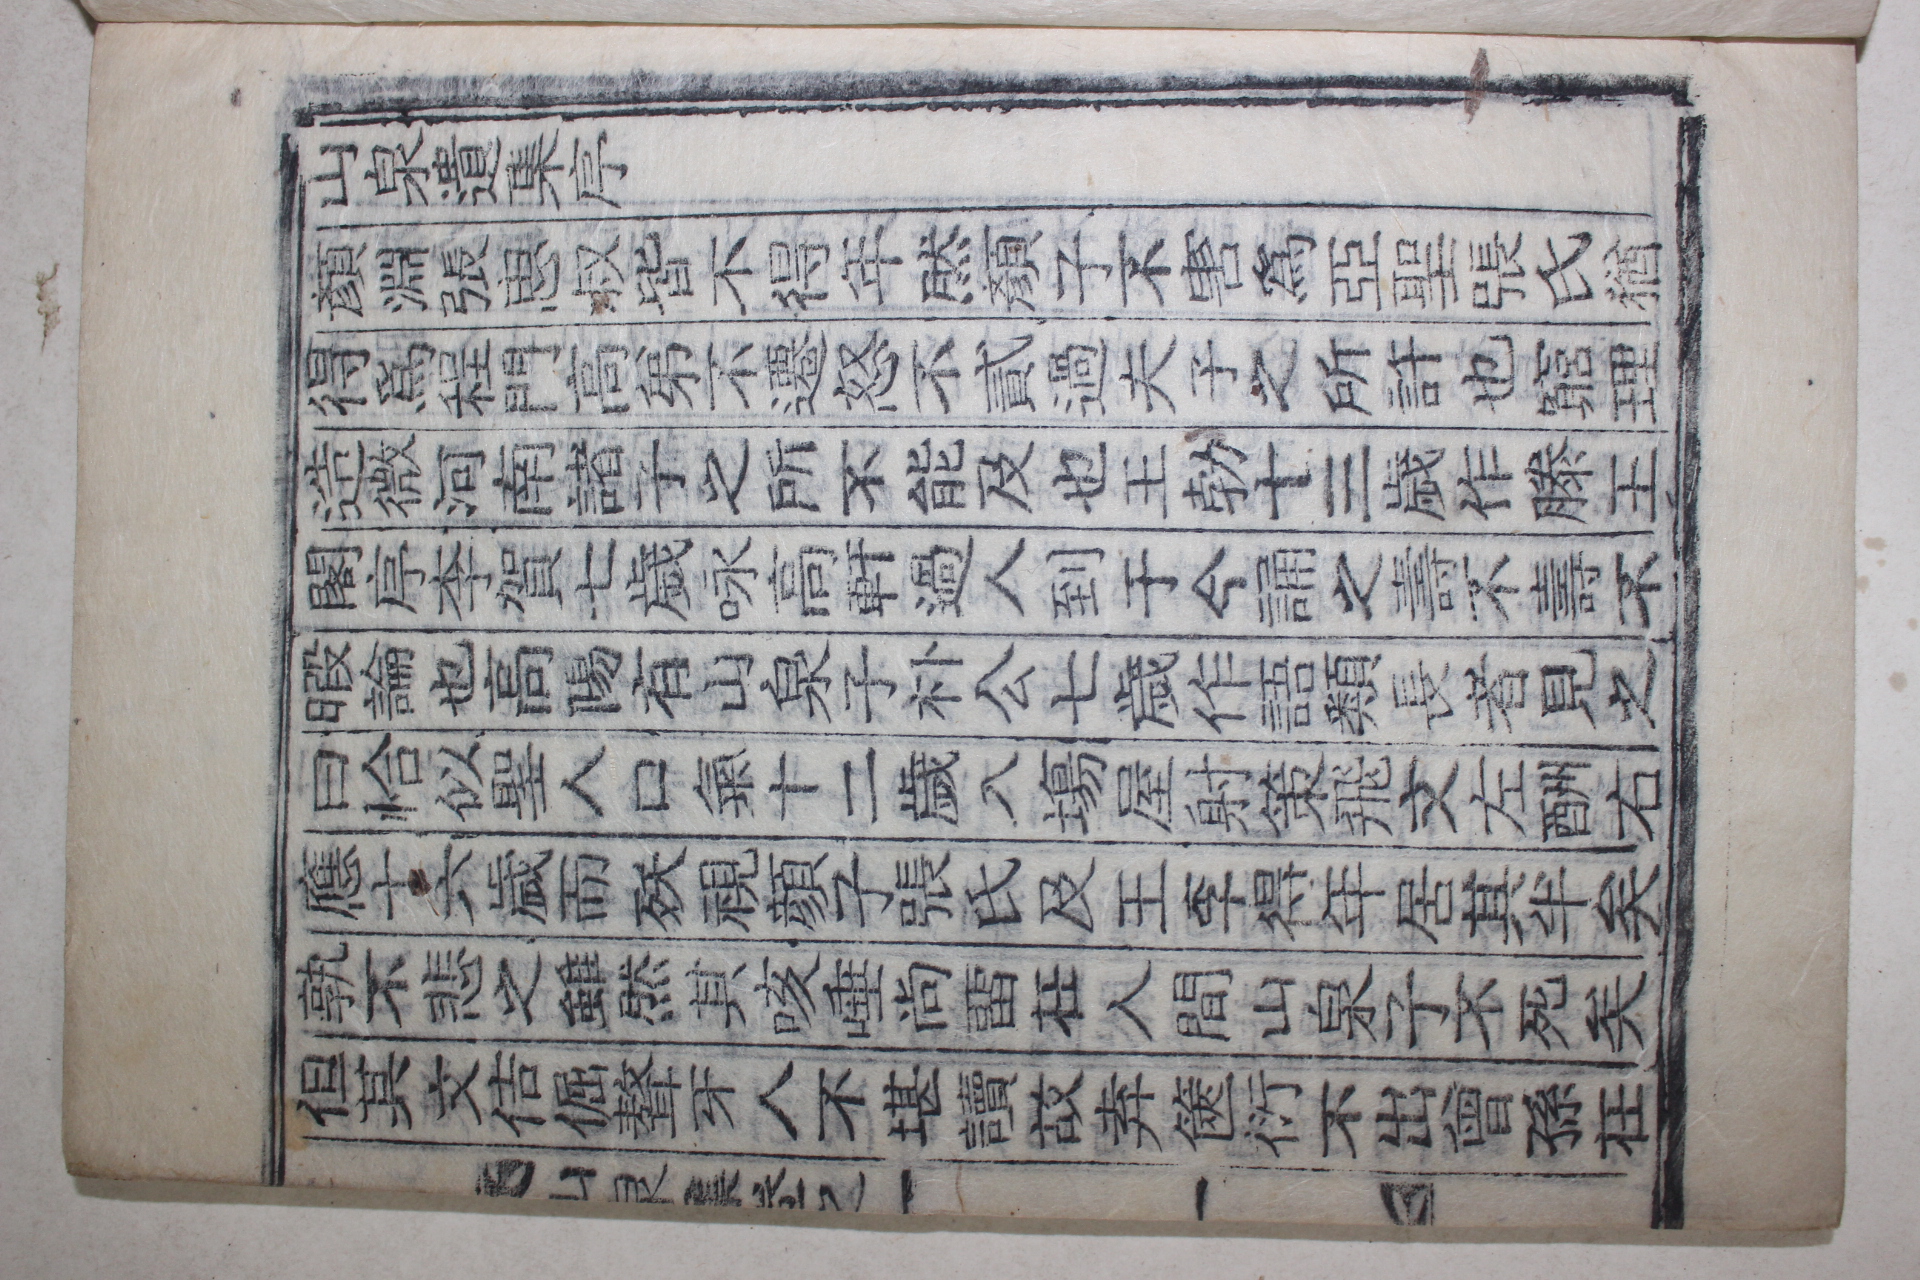 山泉遺集序
顏淵張思叔皆不得年然顏子不害爲亞聖張氏猶
得爲程門高弟不遷怒不貳過夫子之所許也窮理
造微河南諸子之所不能及也王勃十三歲作滕王
閣序李賀七歲咏高軒過人到于今誦之壽不壽不
暇論也高陽有山泉子朴公七歲作語類長者見之
曰恰似聖人口氣十二歲入塲屋射策飛文左酬右
應十六歲而殀視顏子張氏及王李得年居其半矣
孰不悲之雖然其咳唾尚畱在人間山泉子不死矣
但其文佶倔聱牙人不堪讀故弆篋衍不出曾孫在
山泉集卷之一
一